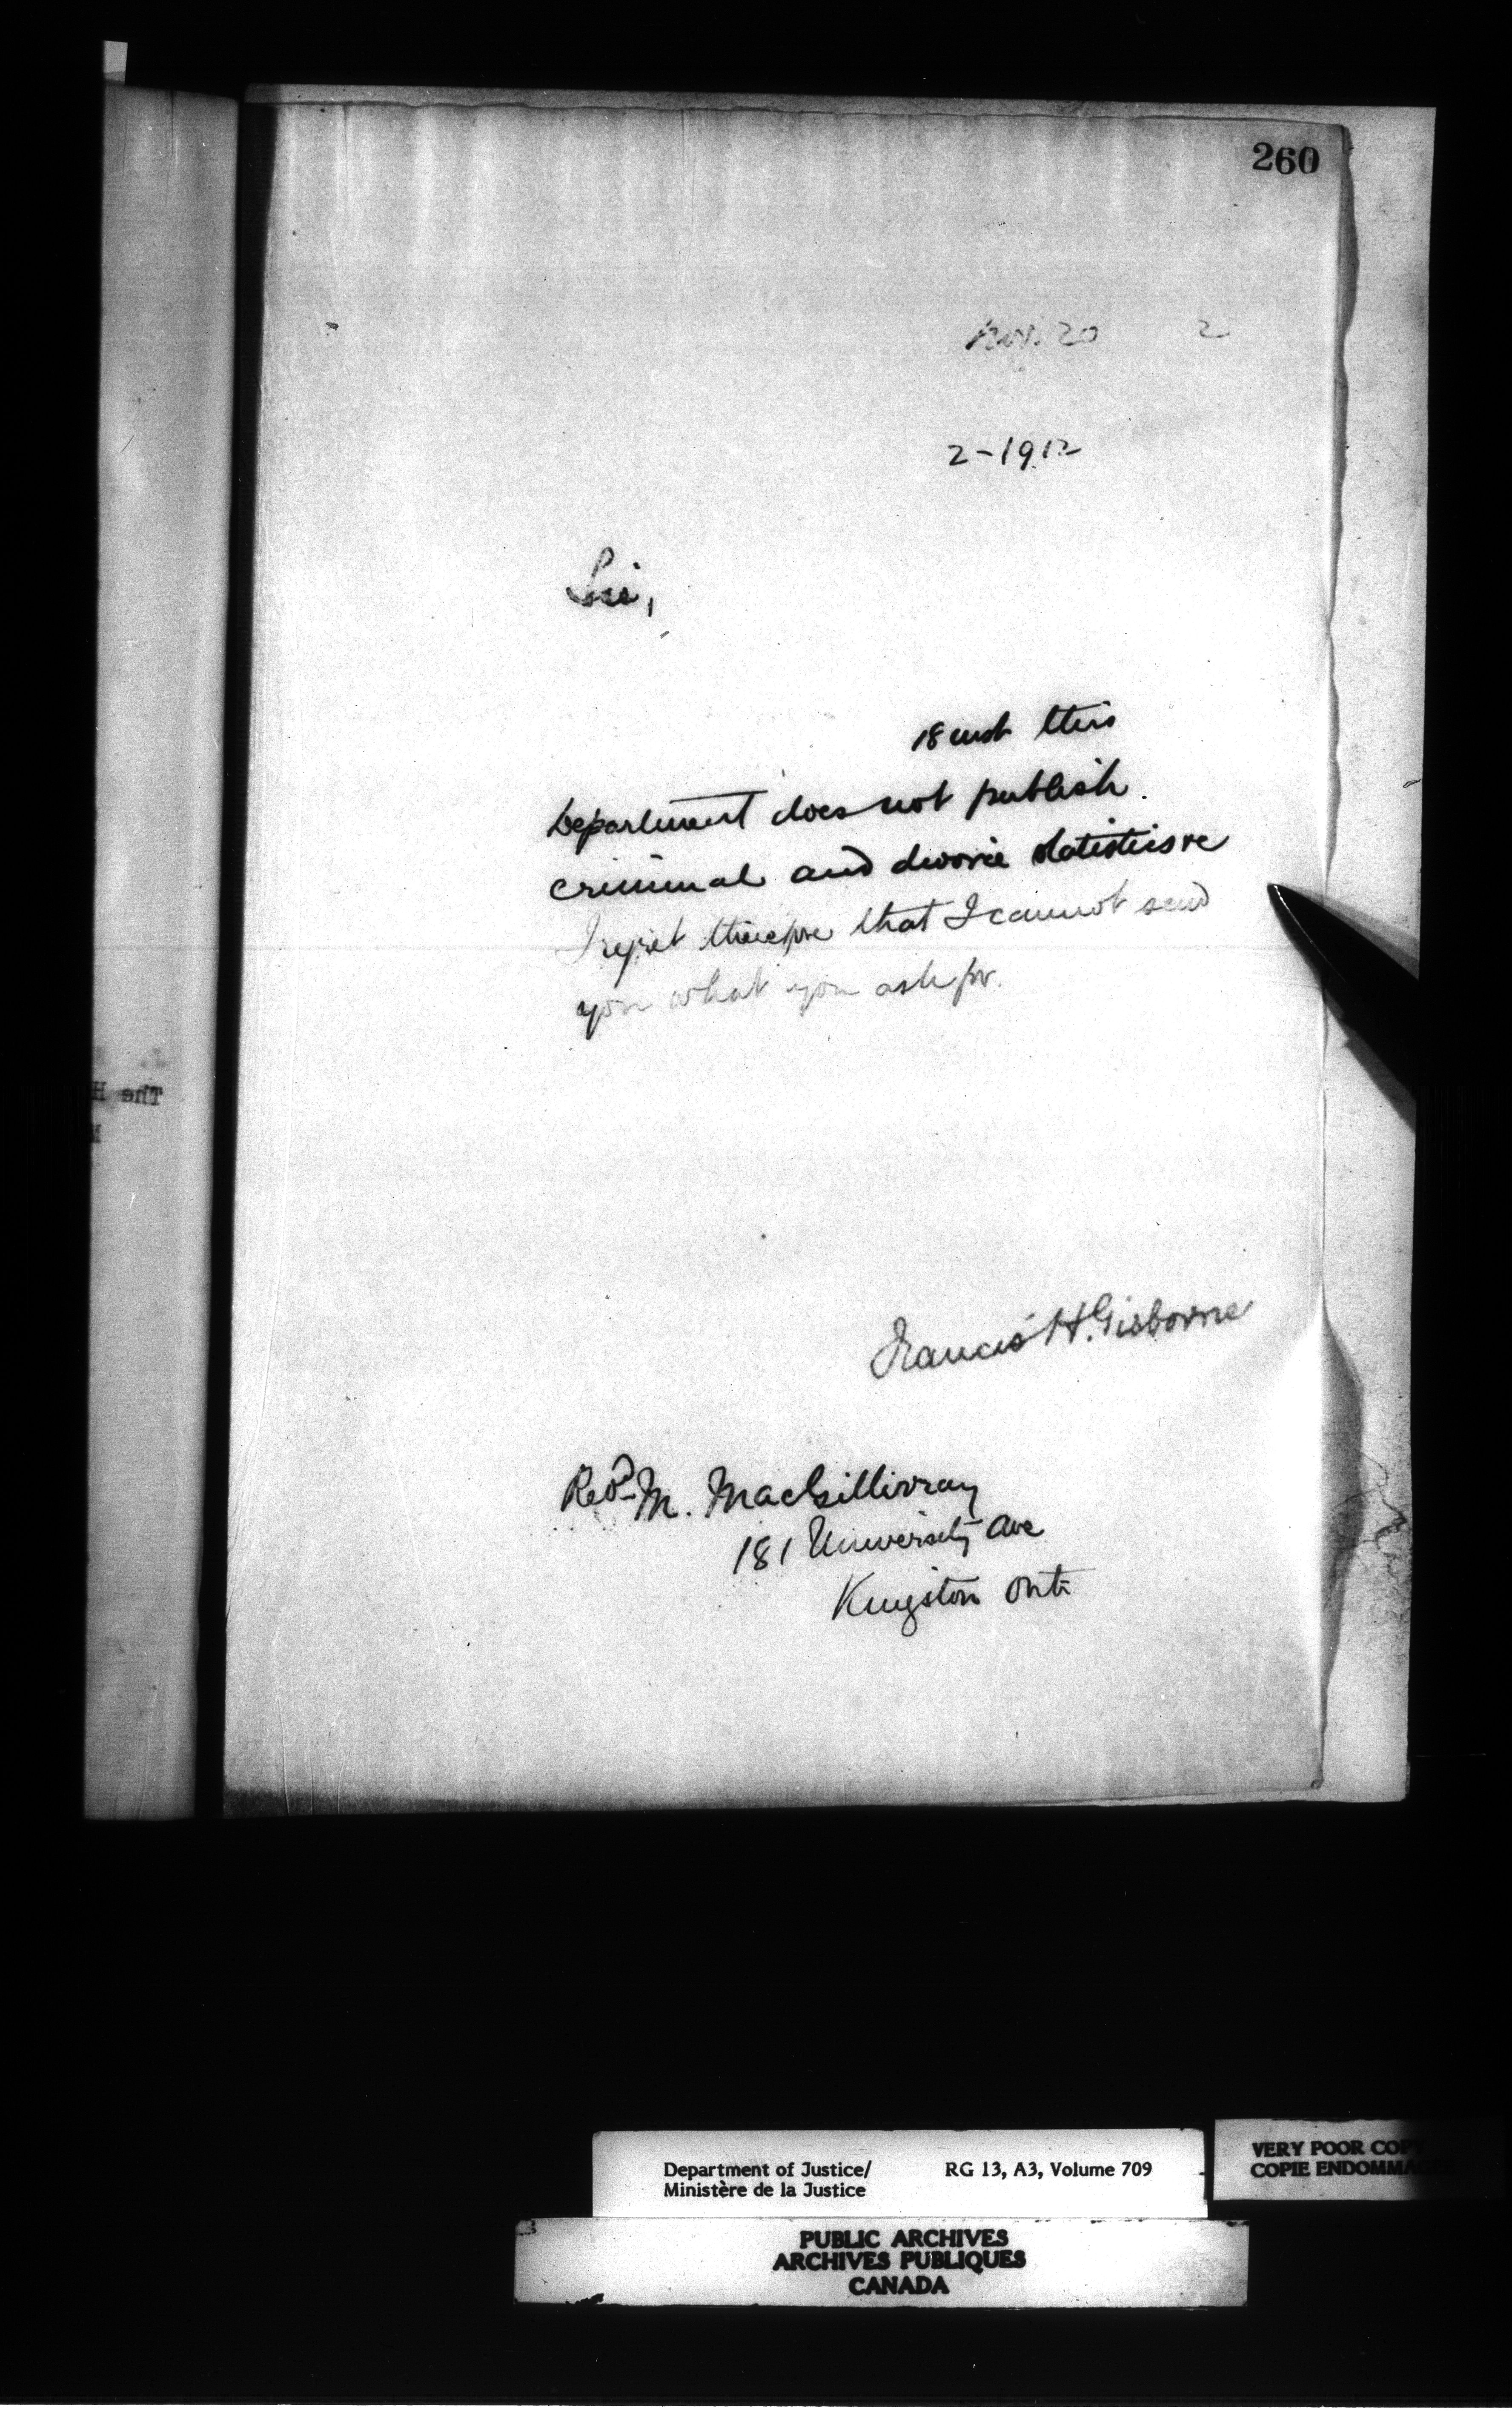 260
Nov. 20 2
2-1912
Sir,
18 inst this
Department does not publish
criminal and divorce statistics re
I regret therefore that I cannot send
you what you ask for.
The H
Francis H. Gisborne
Revd M. MacGillivray
181 University Ave
Kingston Ont
Department of Justice/ RG 13, A3, Volume 709
Ministère de la Justice
VERY POOR COP
COPIE ENDOMMA
PUBLIC ARCHIVES
ARCHIVES PUBLIQUES
CANADA